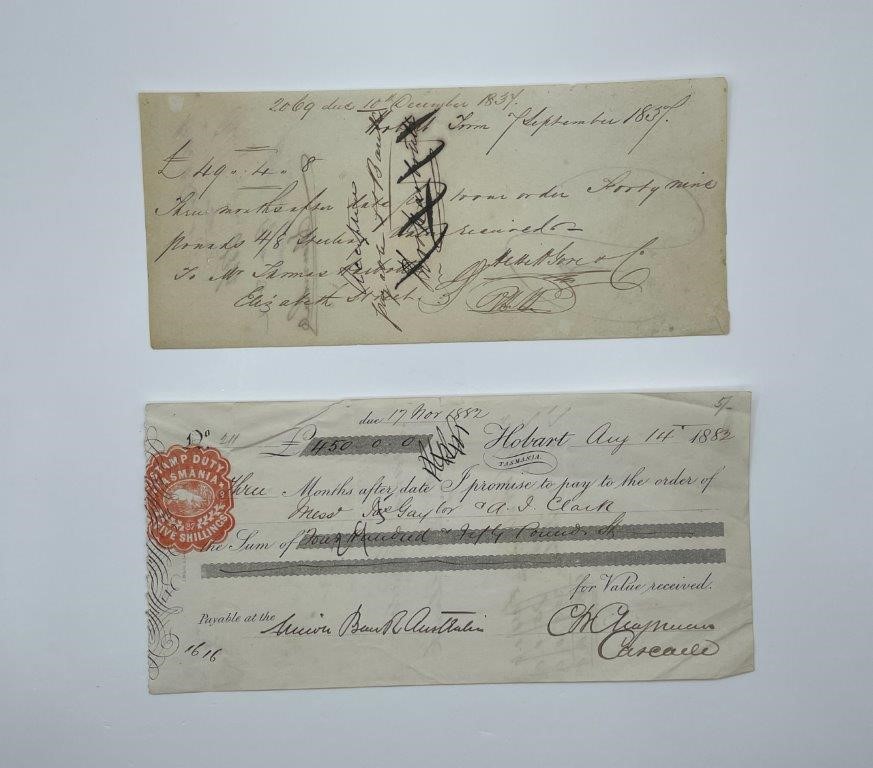 2069 due 10th December 1837.
Hobart Town 7 September 1837.
£ 49 . 4 . 8
Three months after date pay to our order Forty nine
Pounds 4/8 Sterling Value received
To Mr Thomas
Elizabeth Street
Accepted
payable at Bank
5/-
due 17 Nov 1882
No 211
£ 450 . 0 . 0
Hobart Aug 14th 1882
TASMANIA.
STAMP DUTY
TASMANIA
37
FIVE SHILLINGS
Three Months after date I promise to pay to the order of
Messrs Gaylor & A. I. Clark
the Sum of Four Hundred & Fifty Pounds Stg
for Value received.
Payable at the Union Bank Australia
C W Chapman
Cascade
1616